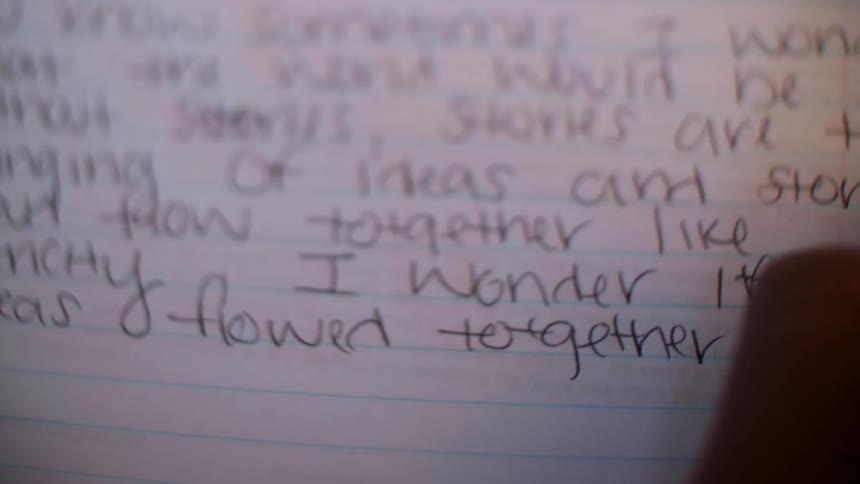 know sometimes I won
the world would be
stories, stories are t
nging of ideas and stor
flow totgether like
I wonder if
eas flowed totgether